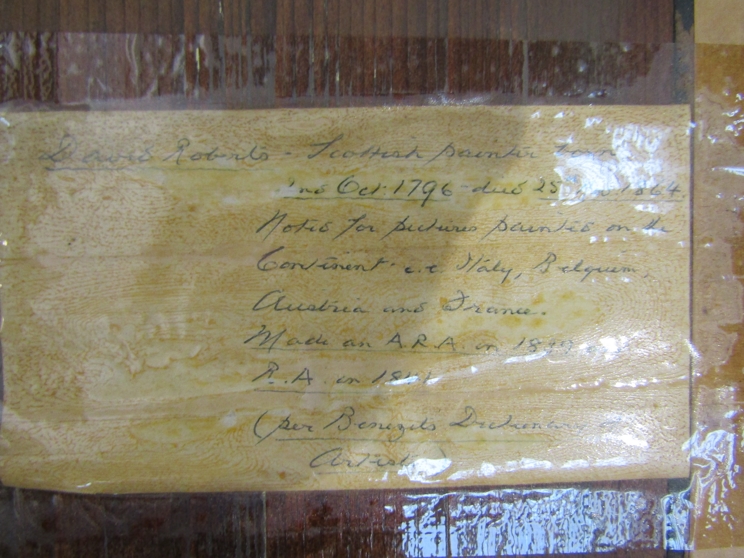 David Roberts - Scottish painter born
2nd Oct 1796 - died 25 1864
Noted for pictures painted on the
Continent - i.e. Italy, Belgium,
Austria and France.
Made an A.R.A. in
R.A. in 1841
(per Benezits Dictionary of
Artists)